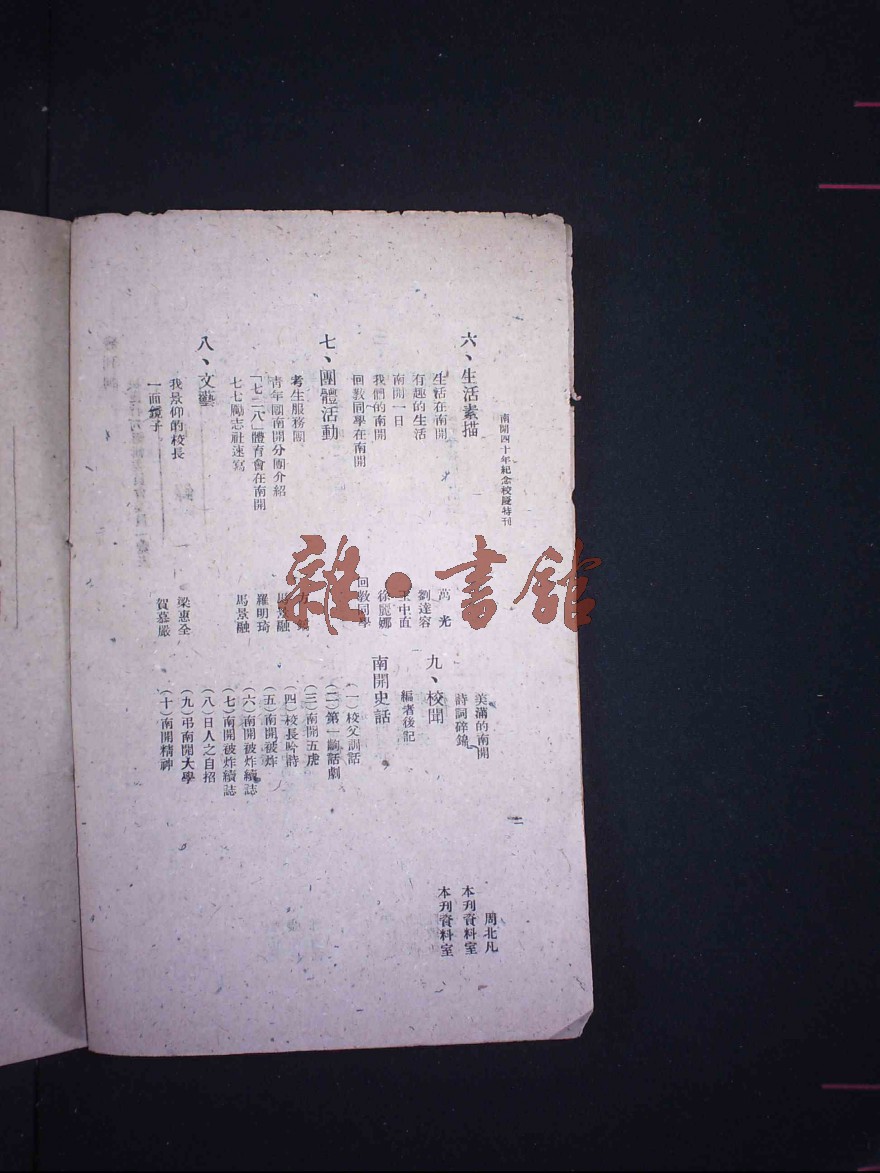 南開四十年紀念校慶特刊
六、生活素描
生活在南開 萬光
有趣的生活 劉達容
南開一日 王中直
我們的南開 徐麗娜
回教同學在南開 回教同學
七、團體活動
考生服務團
青年團南開分團介紹
「七二八」體育會在南開 羅明琦
七七勵志社速寫 馬景融
八、文藝
我景仰的校長 梁惠全
一面鏡子 賀慕嚴
美滿的南開 周北凡
詩詞碎錦 本刊資料室
九、校聞 本刊資料室
編者後記
南開史話
(一)校父訓話
(二)第一齣話劇
(三)南開五虎
(四)校長吟詩
(五)南開被炸
(六)南開被炸續誌
(七)南開被炸續誌
(八)日人之自招
(九)弔南開大學
(十)南開精神
二
雜·書館